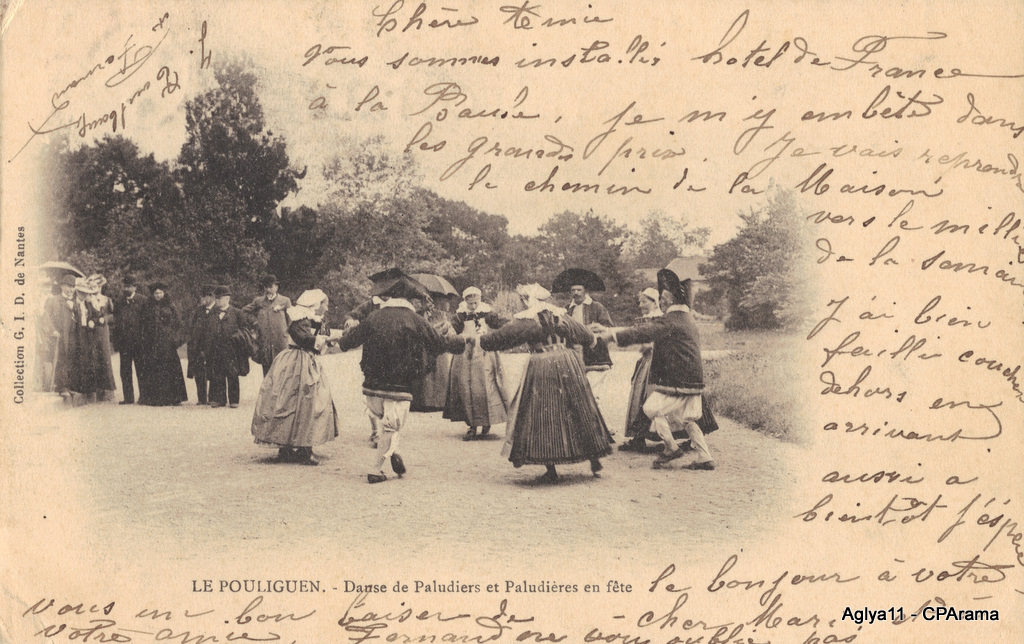 Chère Amie
Vous sommes installés hotel de France
à la Baule, je m'y embête dans
les grands prix. Je vais reprendre
le chemin de la Maison
vers le millieu
de la semaine
J'ai bien
failli coucher
dehors en
arrivant
aussi a
bientôt j'espère
le bonjour à votre
cher Mari
vous un bon baiser de
votre amie Fernande ne vous oublie pas
Fernand
Collection G. I. D. de Nantes
LE POULIGUEN. - Danse de Paludiers et Paludières en fête
Aglya11 - CPArama